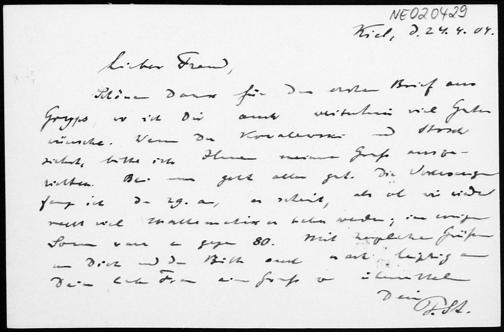 NE020429
Kiel, d. 24.4.04.
Lieber Freund,
Schönen Dank für Den ersten Brief aus
Gryps, wo ich Dir auch weiterhin viel Gutes
wünsche. Wenn Du Kowalewski und
siehst, bitte ich Ihnen meinen Gruß auszu-
richten. Bei uns geht alles gut. Die Vorlesungen
fang ich d. 29. an, es scheint, als ob wir wieder
recht viel Mathematiker haben werden; im vorigen
Sem. waren es gegen 80. Mit herzlichen Grüßen
an Dich und der Bitte auch nach Leipzig an
Deine liebe Frau einen Gruß zu übermitteln
Dein
P. St.